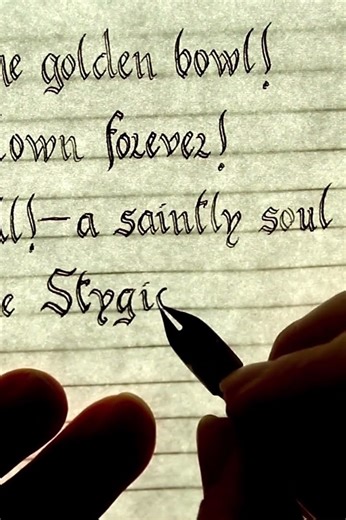 he golden bowl!
lown forever!
ll!—a saintly soul
e Stygi